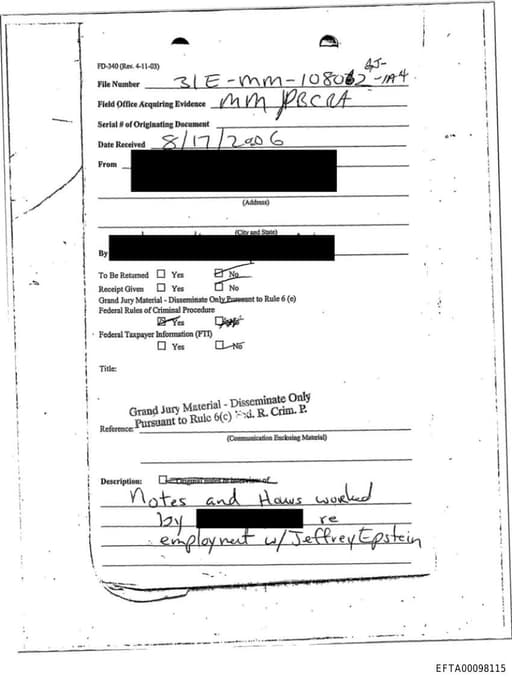 FD-340 (Rev. 4-11-03)
File Number 31E-MM-108062 GJ-1A4
Field Office Acquiring Evidence MM PBCRA
Serial # of Originating Document
Date Received 8/17/2006
From
(Address)
(City and State)
By
To Be Returned ☐ Yes ☐ No
Receipt Given ☐ Yes ☐ No
Grand Jury Material - Disseminate Only Pursuant to Rule 6 (e)
Federal Rules of Criminal Procedure
☒ Yes ☐ No
Federal Taxpayer Information (FTI)
☐ Yes ☐ No
Title:
Grand Jury Material - Disseminate Only
Pursuant to Rule 6(e) Fed. R. Crim. P.
Reference:
(Communication Enclosing Material)
Description: ☐ Original notes re interview of
Notes and Hours worked
by re
employment w/ Jeffrey Epstein
EFTA00098115